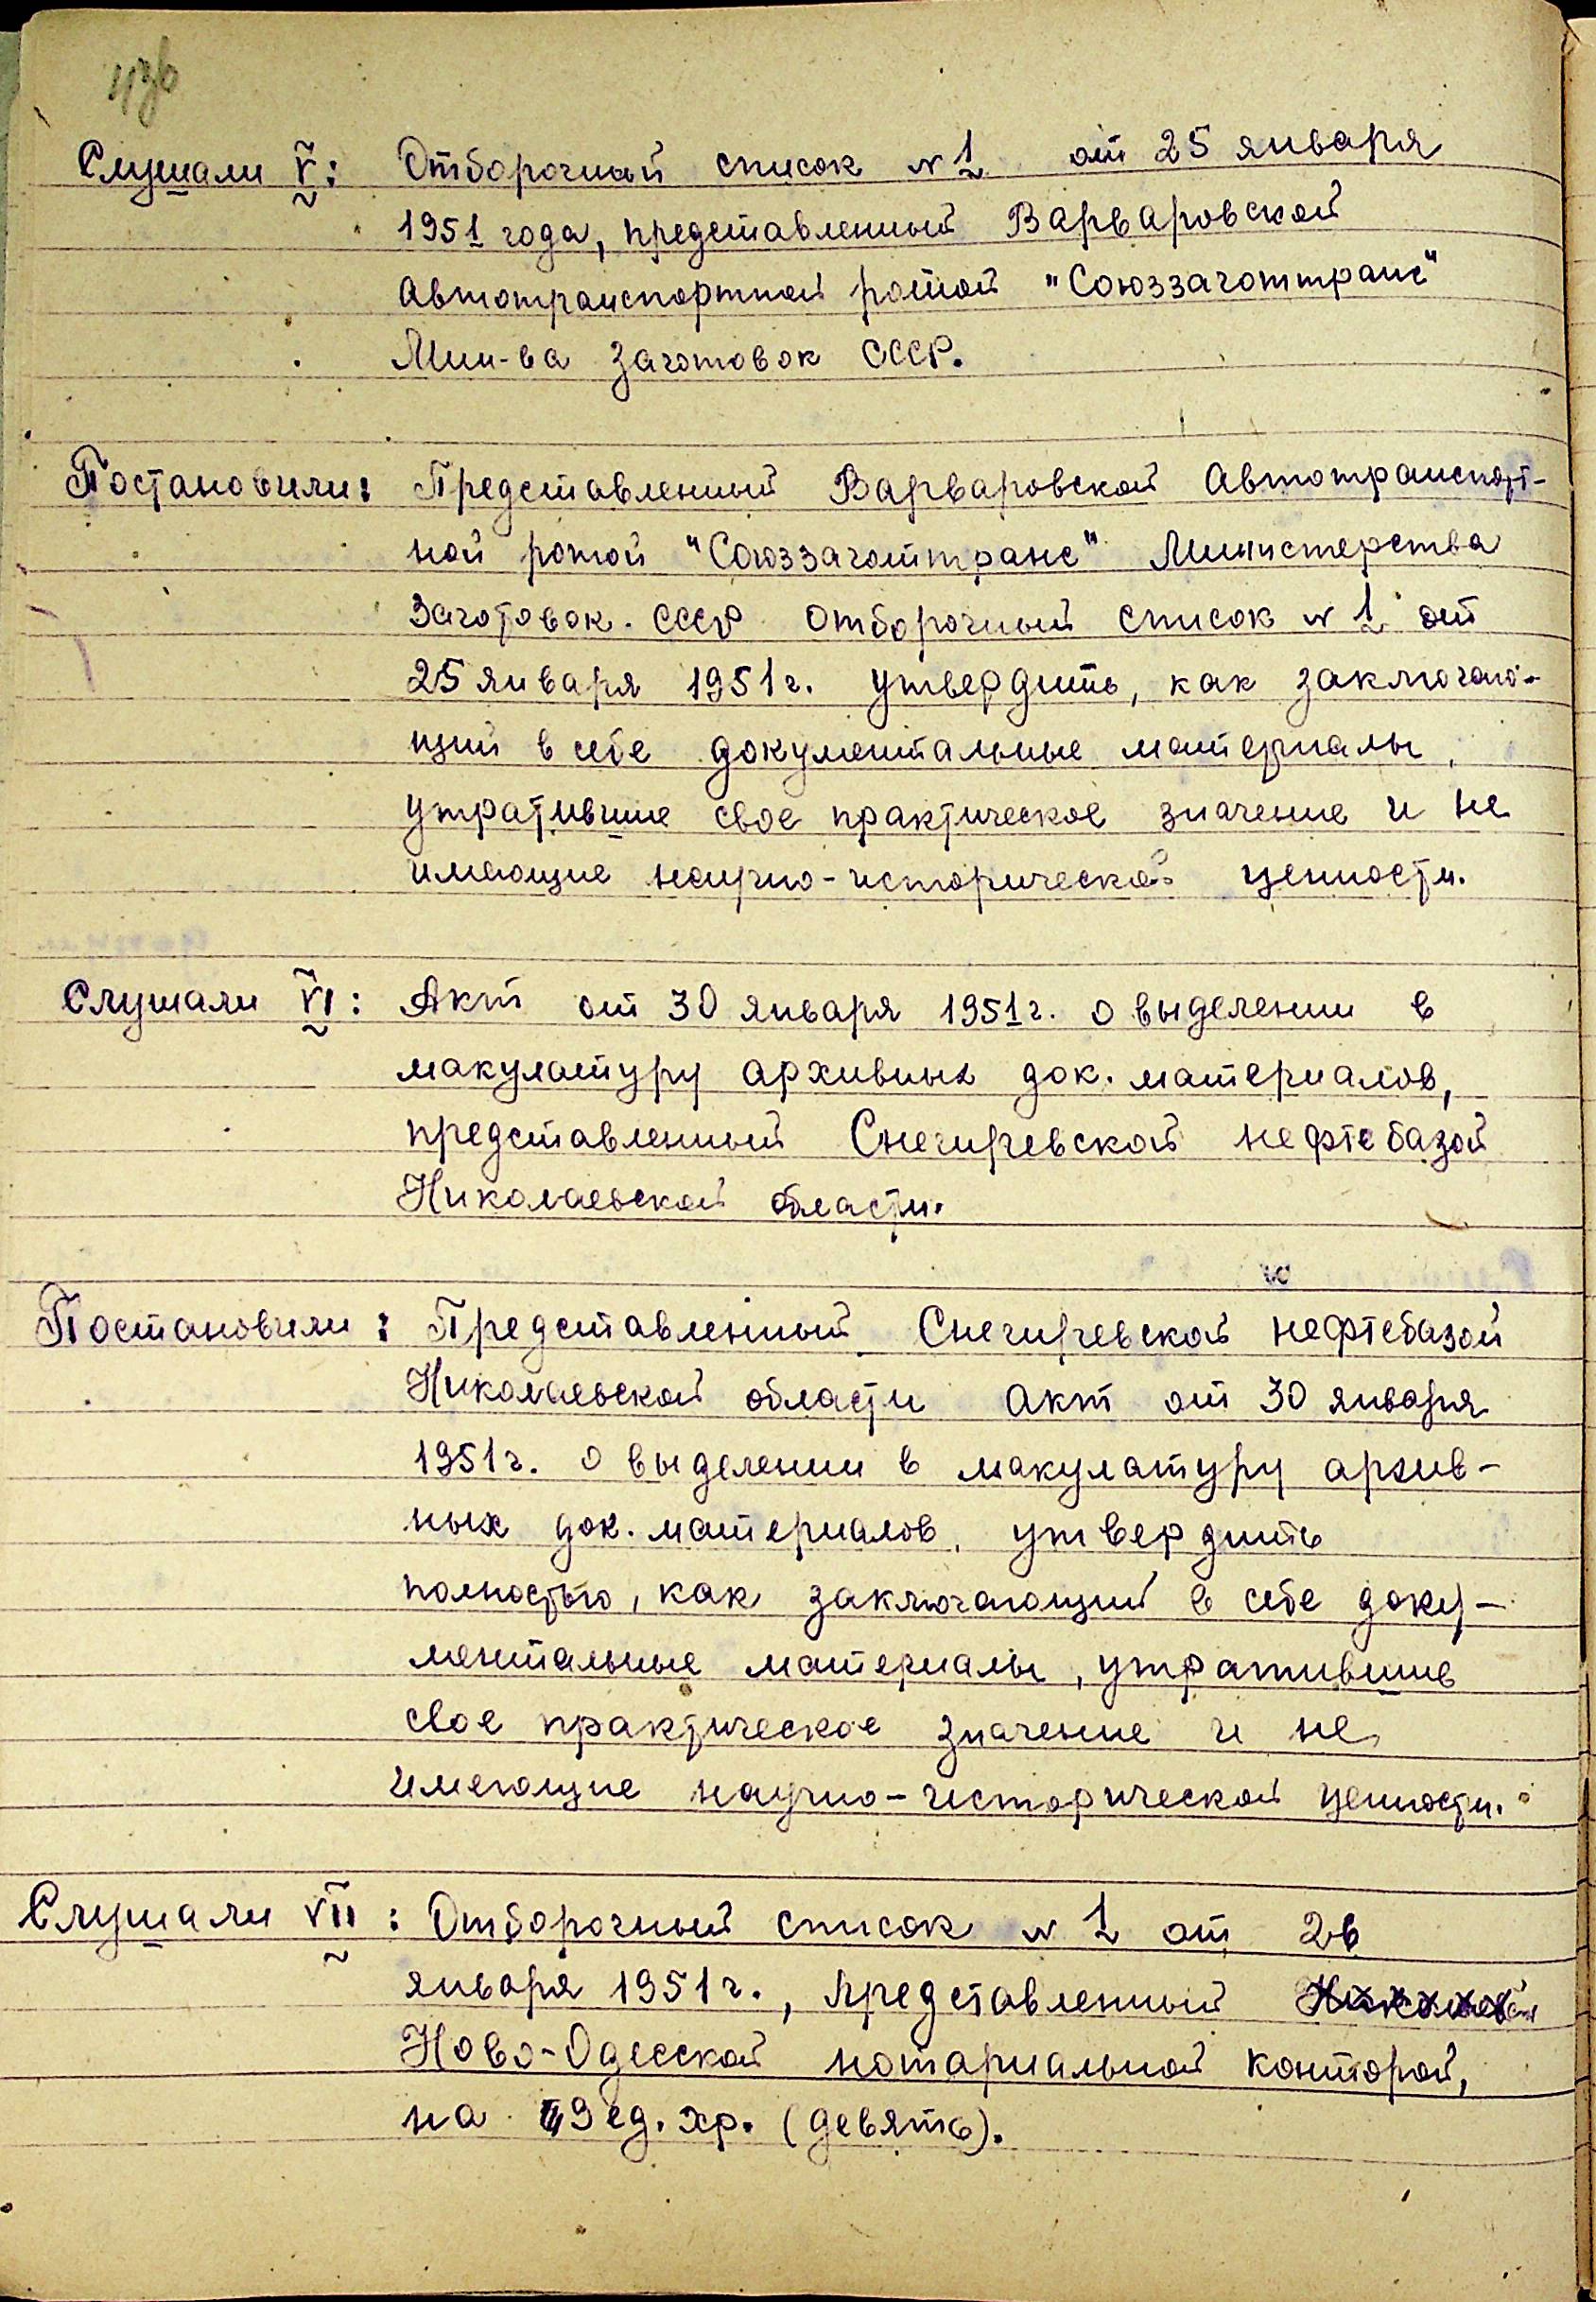 Слушали V: Отборочный список № 1 от 25 января
1951 года, представленный Варваровской
Автотранспортной ротой "Союззаготтранс"
Мин-ва Заготовок СССР.
Постановили: Представленный Варваровской Автотранспорт-
ной ротой "Союззаготтранс" Министерства
Заготовок СССР Отборочный список № 1 от
25 января 1951 г. утвердить, как заключаю-
щий в себе документальные материалы,
утратившие свое практическое значение и не
имеющие научно-исторической ценности.
Слушали VI: Акт от 30 января 1951 г. о выделении в
макулатуру архивных док. материалов,
представленный Снегиревской нефтебазой
Николаевской области.
Постановили: Представленный Снегиревской нефтебазой
Николаевской области Акт от 30 января
1951 г. о выделении в макулатуру архив-
ных док. материалов, утвердить
полностью, как заключающий в себе доку-
ментальные материалы, утратившие
свое практическое значение и не
имеющие научно-исторической ценности.
Слушали VII: Отборочный список № 1 от 26
января 1951 г., представленный
Ново-Одесской нотариальной конторой,
на 9 ед. хр. (девять).